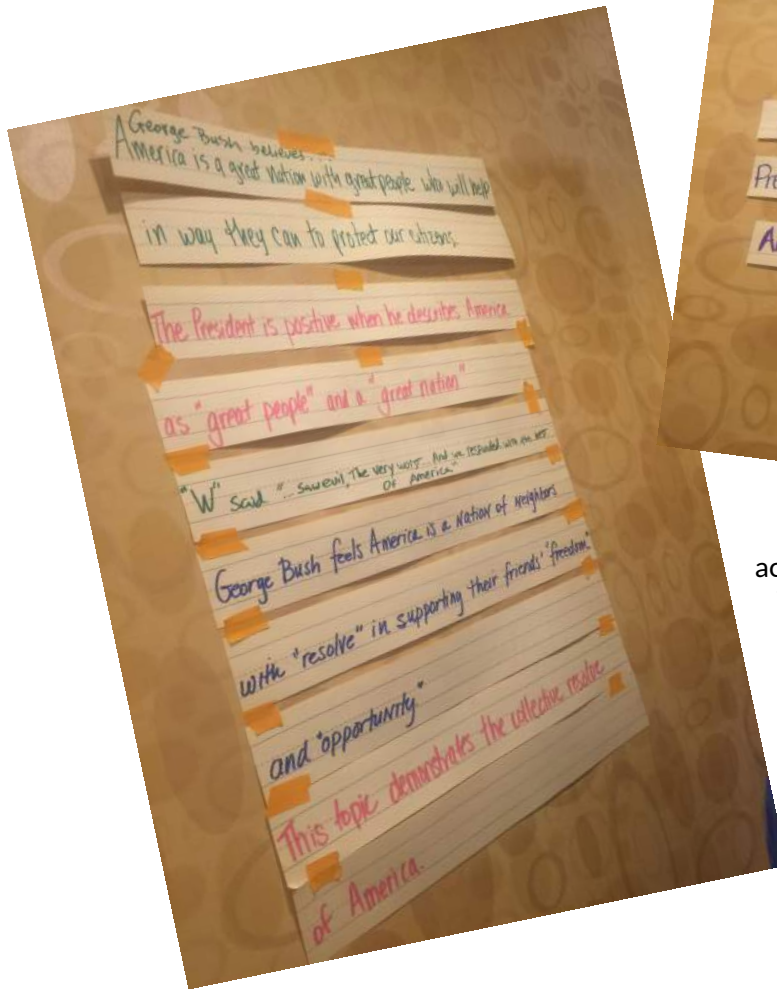 George Bush believes...
America is a great nation with great people who will help
in way they can to protect our citizens.
The President is positive when he describes America
as "great people" and a "great nation"
"W" said "...saw evil, The very worst. And we responded with the best
of America"
George Bush feels America is a Nation of Neighbors
with "resolve" in supporting their friends' "freedom"
and "opportunity."
This topic demonstrates the collective resolve
of America.
Pre
A
ac